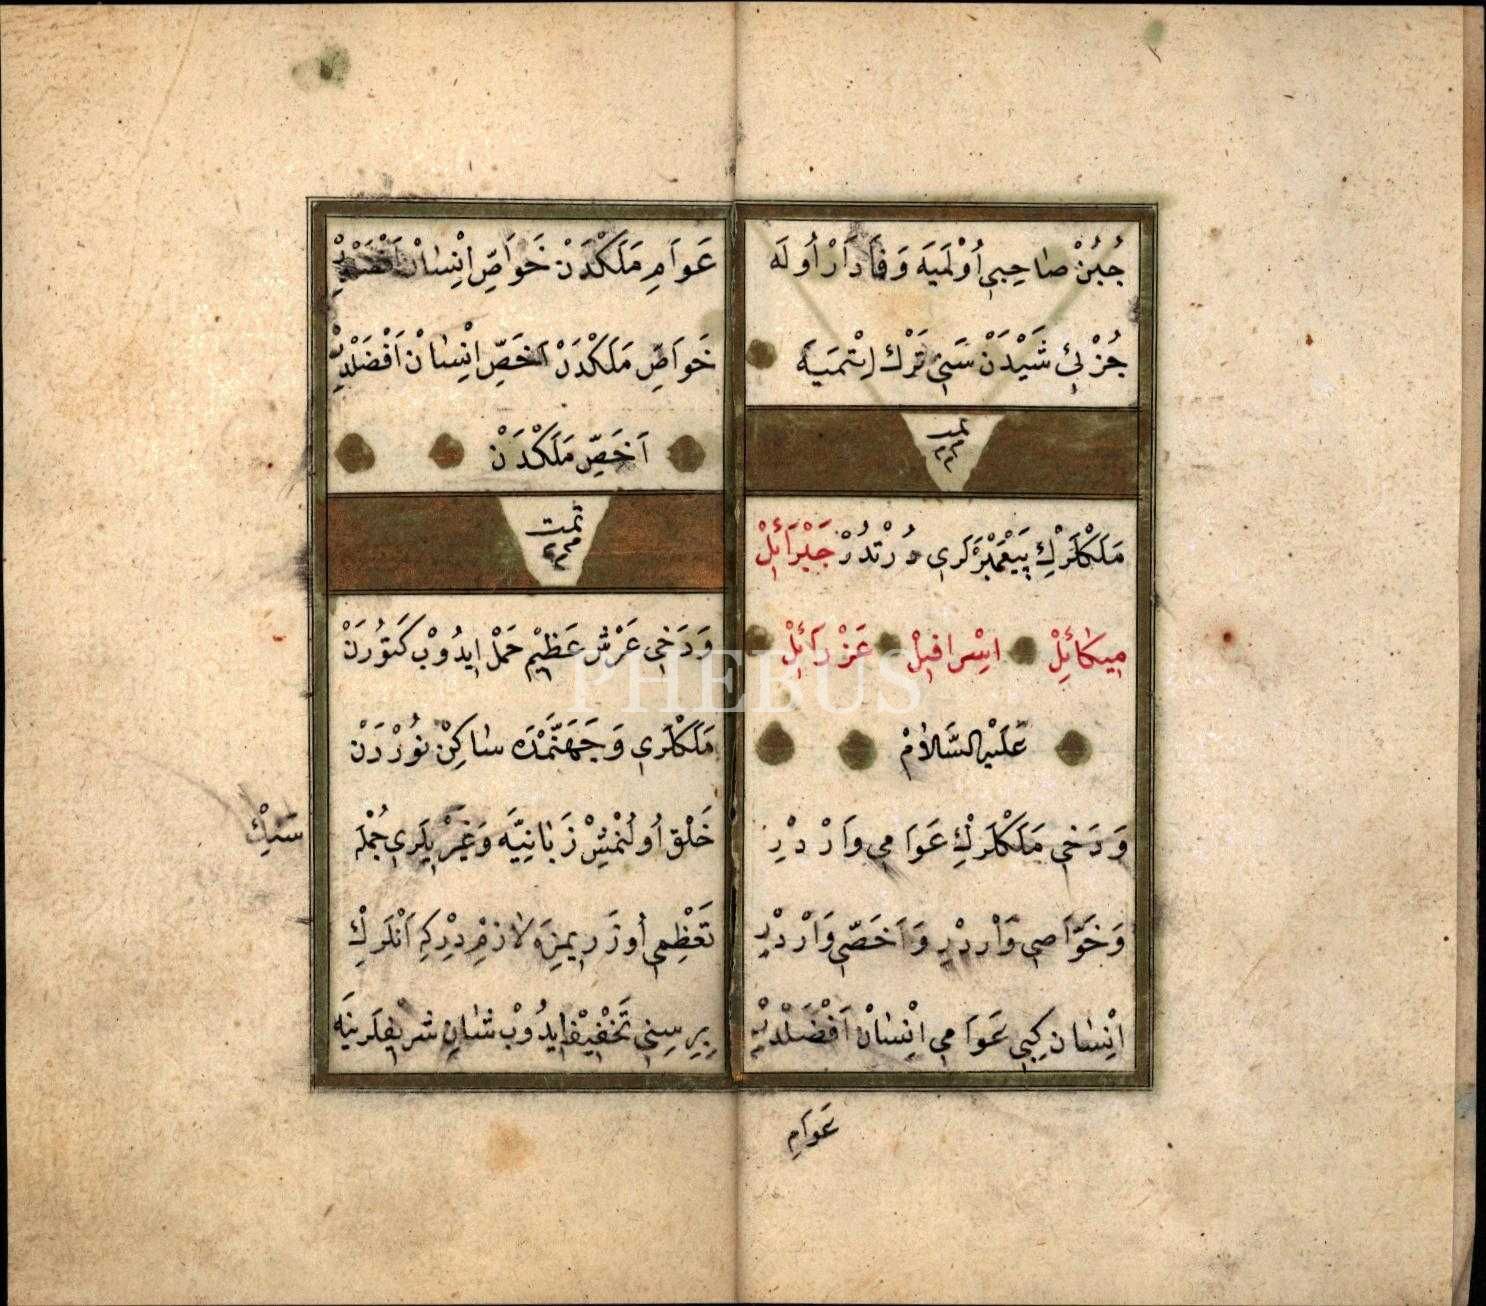 جُبُنْ صَاحِبِي اُوْلْمَيَه وَفَادَارْ اُولَه
جُزْئِي شَيْدَنْ سَنِي تَرْك اِتْمَيَه
تمت
مَلَكْلَرْكْ پَيْغَمْبَرْلَرِي دُرْتْدُرْ جَبْرَائِلْ
مِيكَائِلْ اِسْرَافِيلْ عَزْرَائِلْ
عَلَيْهِ السَّلَامْ
وَدَخِي مَلَكْلَرْكْ عَوَامِي وَارْدْرِ
وَخَوَّاصِي وَارْدْرِ وَاَخَصِّي وَارْدْرِ
اِنْسَان كِبِي عَوَامِي اِنْسَانْ اَفْضَلْدِرْ
عَوَامِ
عَوَامِ مَلَكْدَنْ خَوَاصِّ اِنْسَانْ اَفْضَلْدِرْ
خَوَاصِّ مَلَكْدَنْ اَخَصِّ اِنْسَانْ اَفْضَلْدِرْ
اَخَصِّ مَلَكْدَنْ
تمت
وَدَخِي عَرْشِ عَظِيْمْ حَمْل اِيدُوبْ كَتُورَنْ
مَلَكْلَرِي وَجَهَنَّمْدَه سَاكِنْ نُورْدَنْ
خَلْق اُولُنْمِشْ زَبَانِيَّه وَغَيْرِيلَرِي جُمْلَه
سَنِكْ
تَعْظِمِي اُوزَرِيمِزَه لَازِمْ دِرْكِه اَنْلَرْكْ
بِرِسِنِي تَخْفِيْف اِيدُوبْ شَانِ شَرِيفْلَرِينَه
PHEBUS